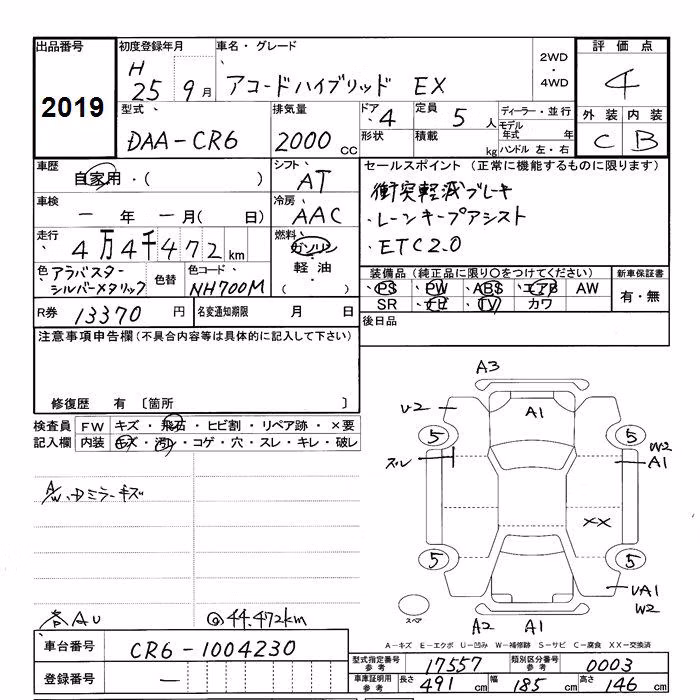 出品番号
2019
初度登録年月
H
25 9月
車名・グレード
アコードハイブリッド EX
2WD
・
4WD
評価点
4
外装 内装
C B
型式
DAA-CR6
排気量
2000 cc
ドア 4
形状
定員 5 人
積載 kg
ディーラー・並行
モデル年式 年
ハンドル 左・右
車歴
自家用・( )
シフト
AT
車検
一 年 一 月( 日)
冷房
AAC
走行
4万4千472 km
燃料
ガソリン
・
軽油
( )
色
アラバスターシルバーメタリック
色替
色コード
NH700M
R券 13370 円
名変通知期限 月 日
セールスポイント(正常に機能するものに限ります)
衝突軽減ブレーキ
・レーンキープアシスト
・ETC2.0
装備品(純正品に限り○をつけてください)
新車保証書
PS PW ABS エアB AW
有・無
SR ナビ TV カワ
後日品
注意事項申告欄(不具合内容等は具体的に記入して下さい)
修復歴 有 〔箇所 〕
検査員記入欄
FW キズ・飛石・ヒビ割・リペア跡・×要
内装 キズ・汚レ・コゲ・穴・スレ・キレ・破レ
A/W・Dミラーキズ
各AU
@44.472km
A3
U2
A1
5
5
W2
A1
スレ
XX
5
5
UA1
W2
スペア
A2 A1
A-キズ E-エクボ U-凹み W-補修跡 S-サビ C-腐食 XX-交換済
車台番号
CR6-1004230
登録番号
一
型式指定番号
参考
17557
類別区分番号
参考
0003
車庫証明用
参考
長さ 491 cm
幅 185 cm
高さ 146 cm